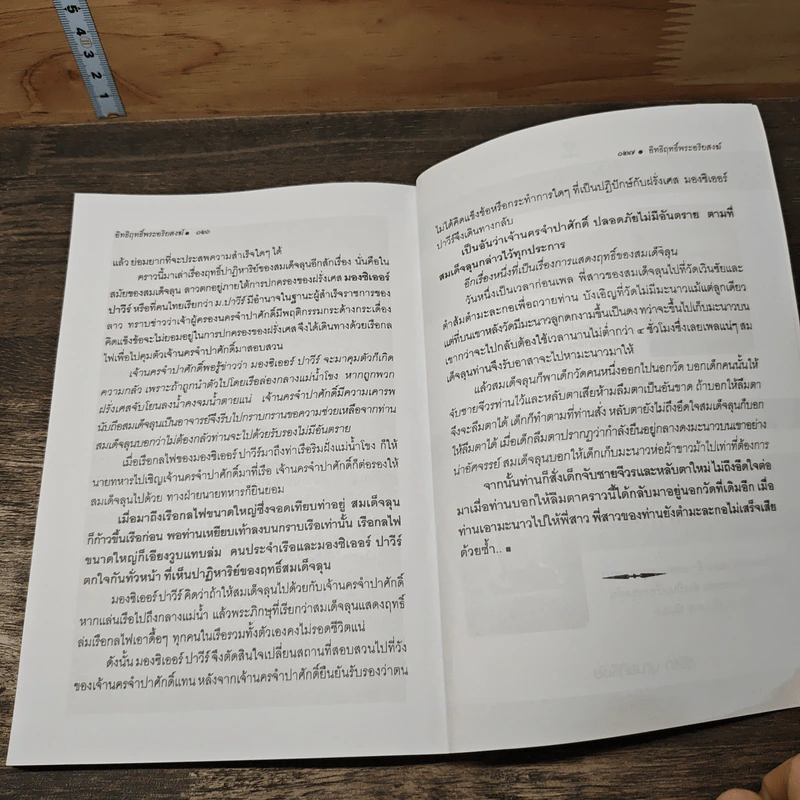 5 4 3 2 1
อิทธิฤทธิ์พระอริยสงฆ์ ● ๐๒๖
แล้ว ย่อมยากที่จะประสพความสำเร็จใดๆ ได้
คราวนี้มาเล่าเรื่องฤทธิ์ปาฏิหาริย์ของสมเด็จลุนอีกสักเรื่อง นั่นคือใน
สมัยของสมเด็จลุน ลาวตกอยู่ภายใต้การปกครองของฝรั่งเศส มองซิเออร์
ปาวีร์ หรือที่คนไทยเรียกว่า ม.ปาวีร์ มีอำนาจในฐานะผู้สำเร็จราชการของ
ลาว ทราบข่าวว่าเจ้าผู้ครองนครจำปาศักดิ์มีพฤติกรรมกระด้างกระเดื่อง
คิดแข็งข้อจะไม่ยอมอยู่ในการปกครองของฝรั่งเศส จึงได้เดินทางด้วยเรือกล
ไฟเพื่อไปคุมตัวเจ้านครจำปาศักดิ์มาสอบสวน
เจ้านครจำปาศักดิ์พอรู้ข่าวว่า มองซิเออร์ ปาวีร์ จะมาคุมตัวก็เกิด
ความกลัว เพราะถ้าถูกนำตัวไปโดยเรือล่องกลางแม่น้ำโขง หากถูกพวก
ฝรั่งเศสจับโยนลงน้ำคงจมน้ำตายแน่ เจ้านครจำปาศักดิ์มีความเคารพ
นับถือสมเด็จลุนเป็นอาจารย์จึงรีบไปกราบกรานขอความช่วยเหลือจากท่าน
สมเด็จลุนบอกว่าไม่ต้องกลัวท่านจะไปด้วยรับรองไม่มีอันตราย
เมื่อเรือกลไฟของมองซิเออร์ ปาวีร์มาถึงท่าเรือริมฝั่งแม่น้ำโขง ก็ให้
นายทหารไปเชิญเจ้านครจำปาศักดิ์มาที่เรือ เจ้านครจำปาศักดิ์ก็ต่อรองให้
สมเด็จลุนไปด้วย ทางฝ่ายนายทหารก็ยินยอม
เมื่อมาถึงเรือกลไฟขนาดใหญ่ซึ่งจอดเทียบท่าอยู่ สมเด็จลุน
ก็ก้าวขึ้นเรือก่อน พอท่านเหยียบเท้าลงบนกราบเรือเท่านั้น เรือกลไฟ
ขนาดใหญ่ก็เอียงวูบแทบล่ม คนประจำเรือและมองซิเออร์ ปาวีร์
ตกใจกันทั่วหน้า ที่เห็นปาฏิหาริย์ของฤทธิ์สมเด็จลุน
มองซิเออร์ ปาวีร์ คิดว่าถ้าให้สมเด็จลุนไปด้วยกับเจ้านครจำปาศักดิ์
หากแล่นเรือไปถึงกลางแม่น้ำ แล้วพระภิกษุที่เรียกว่าสมเด็จลุนแสดงฤทธิ์
ล่มเรือกลไฟเอาดื้อๆ ทุกคนในเรือรวมทั้งตัวเองคงไม่รอดชีวิตแน่
ดังนั้น มองซิเออร์ ปาวีร์ จึงตัดสินใจเปลี่ยนสถานที่สอบสวนไปที่วัง
ของเจ้านครจำปาศักดิ์แทน หลังจากเจ้านครจำปาศักดิ์ยืนยันรับรองว่าตน
๐๒๗ ● อิทธิฤทธิ์พระอริยสงฆ์
ไม่ได้คิดแข็งข้อหรือกระทำการใดๆ ที่เป็นปฏิปักษ์กับฝรั่งเศส มองซิเออร์
ปาวีร์จึงเดินทางกลับ
เป็นอันว่าเจ้านครจำปาศักดิ์ ปลอดภัยไม่มีอันตราย ตามที่
สมเด็จลุนกล่าวไว้ทุกประการ
อีกเรื่องหนึ่งที่เป็นเรื่องการแสดงฤทธิ์ของสมเด็จลุน
วันหนึ่งเป็นเวลาก่อนเพล พี่สาวของสมเด็จลุนไปที่วัดเวินชัยและ
ตำส้มตำมะละกอเพื่อถวายท่าน บังเอิญที่วัดไม่มีมะนาวแม้แต่ลูกเดียว
แต่ที่บนเขาหลังวัดมีมะนาวลูกดกงามขึ้นเป็นดง ทว่าจะขึ้นไปเก็บมะนาวบน
เขากว่าจะไปกลับต้องใช้เวลานานไม่ต่ำกว่า ๔ ชั่วโมงซึ่งเลยเพลแน่ๆ สม
เด็จลุนท่านจึงรับอาสาจะไปหามะนาวมาให้
แล้วสมเด็จลุนก็พาเด็กวัดคนหนึ่งออกไปนอกวัด บอกเด็กคนนั้นให้
จับชายจีวรท่านไว้และหลับตาเสียห้ามลืมตาเป็นอันขาด ถ้าบอกให้ลืมตา
จึงจะลืมตาได้ เด็กก็ทำตามที่ท่านสั่ง หลับตายังไม่ถึงอึดใจสมเด็จลุนก็บอก
ให้ลืมตาได้ เมื่อเด็กลืมตาปรากฏว่ากำลังยืนอยู่กลางดงมะนาวบนเขาอย่าง
น่าอัศจรรย์ สมเด็จลุนบอกให้เด็กเก็บมะนาวห่อผ้าขาวม้าไปเท่าที่ต้องการ
จากนั้นท่านก็สั่งเด็กจับชายจีวรและหลับตาใหม่ไม่ถึงอึดใจต่อ
มาเมื่อท่านบอกให้ลืมตาคราวนี้ได้กลับมาอยู่นอกวัดที่เดิมอีก เมื่อ
ท่านเอามะนาวไปให้พี่สาว พี่สาวของท่านยังตำมะละกอไม่เสร็จเสีย
ด้วยซ้ำ.. ■